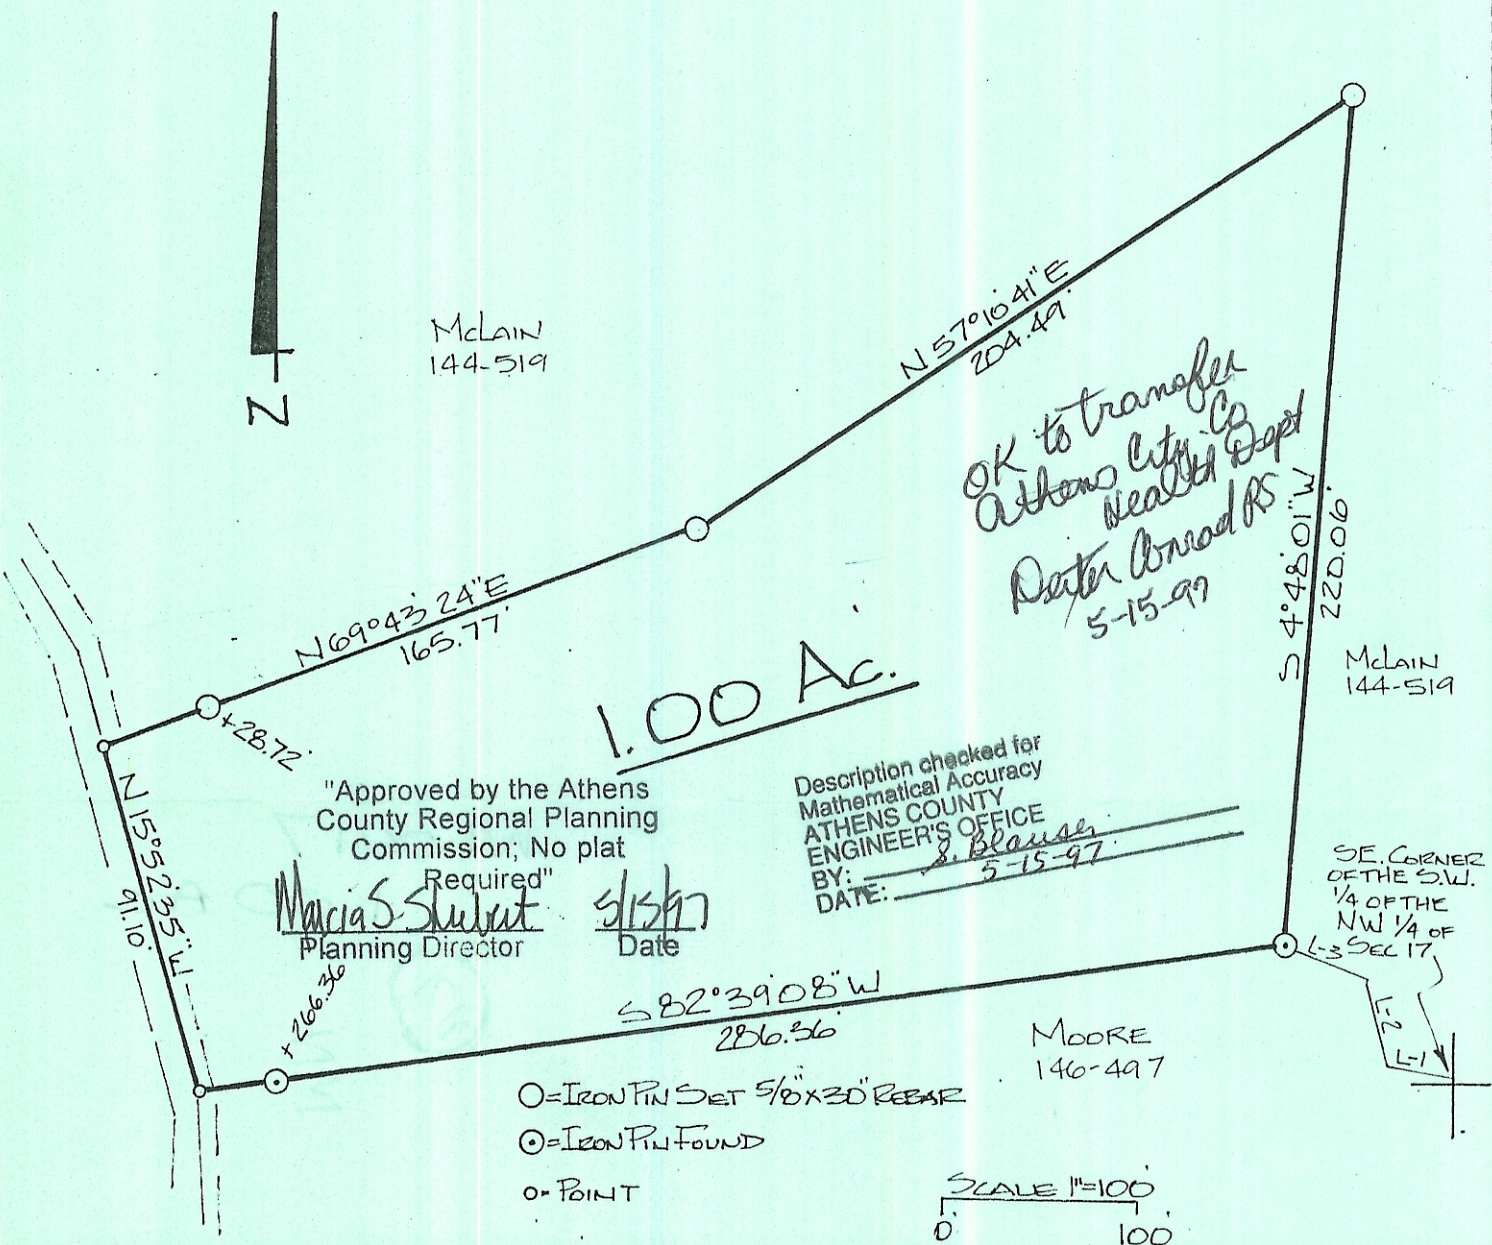 N
McLAIN
144-519
N 57°10'41"E
204.49'
OK to transfer
Athens City-Co
Health Dept
Conrad RS
5-15-97
S 4°48'01"W
220.06'
McLAIN
144-519
N 69°43'24"E
165.77'
+28.72'
1.00 Ac.
N 15°52'35"W
91.10'
"Approved by the Athens
County Regional Planning
Commission; No plat
Required"
Marcia S. 5/15/97
Planning Director Date
Description checked for
Mathematical Accuracy
ATHENS COUNTY
ENGINEER'S OFFICE
BY: S. Blauser
DATE: 5-15-97
S.E. CORNER
OF THE S.W.
1/4 OF THE
NW 1/4 OF
SEC 17
L-3
L-2
L-1
+266.36
S 82°39'08"W
286.36'
MOORE
146-497
O=IRON PIN SET 5/8"X30" REBAR
⊙=IRON PIN FOUND
o= POINT
SCALE 1"=100'
0' 100'